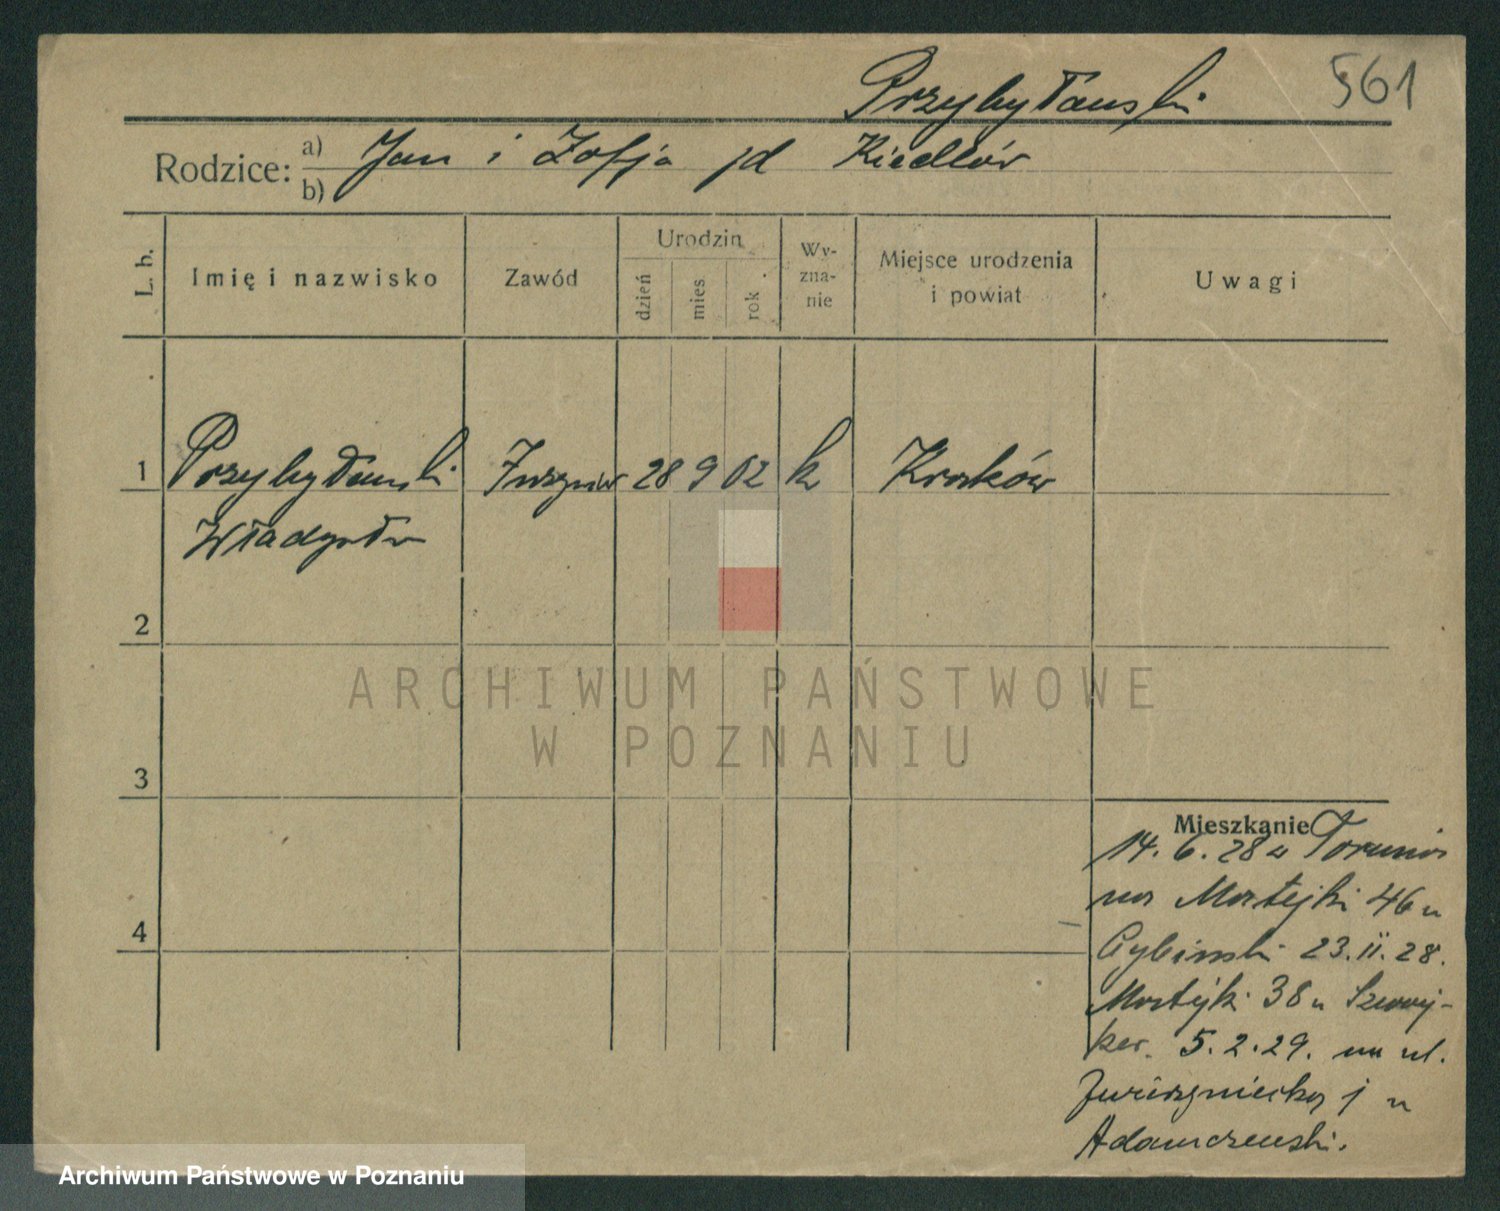 Przybyłański
561
Rodzice: a) Jan i Zofja jd Kiedlów
b)
L. b.
Imię i nazwisko
Zawód
Urodzin
dzień
mies
rok
Wy-
zna-
nie
Miejsce urodzenia
i powiat
Uwagi
1 Przybyłański 28 9 02 k Kraków
Władysław
2
3
4
Mieszkanie
14. 6. 28 z Torunia
na Matejki 46 u
Cybinski 23.II.28.
Matejki 38 u
5.2.29. na ul.
Zwierzyniecką 1 u
Adamczewski.
ARCHIWUM PAŃSTWOWE
W POZNANIU
Archiwum Państwowe w Poznaniu